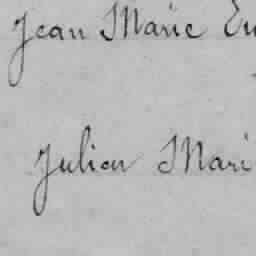 Jean Marie Eu
Julien Mari